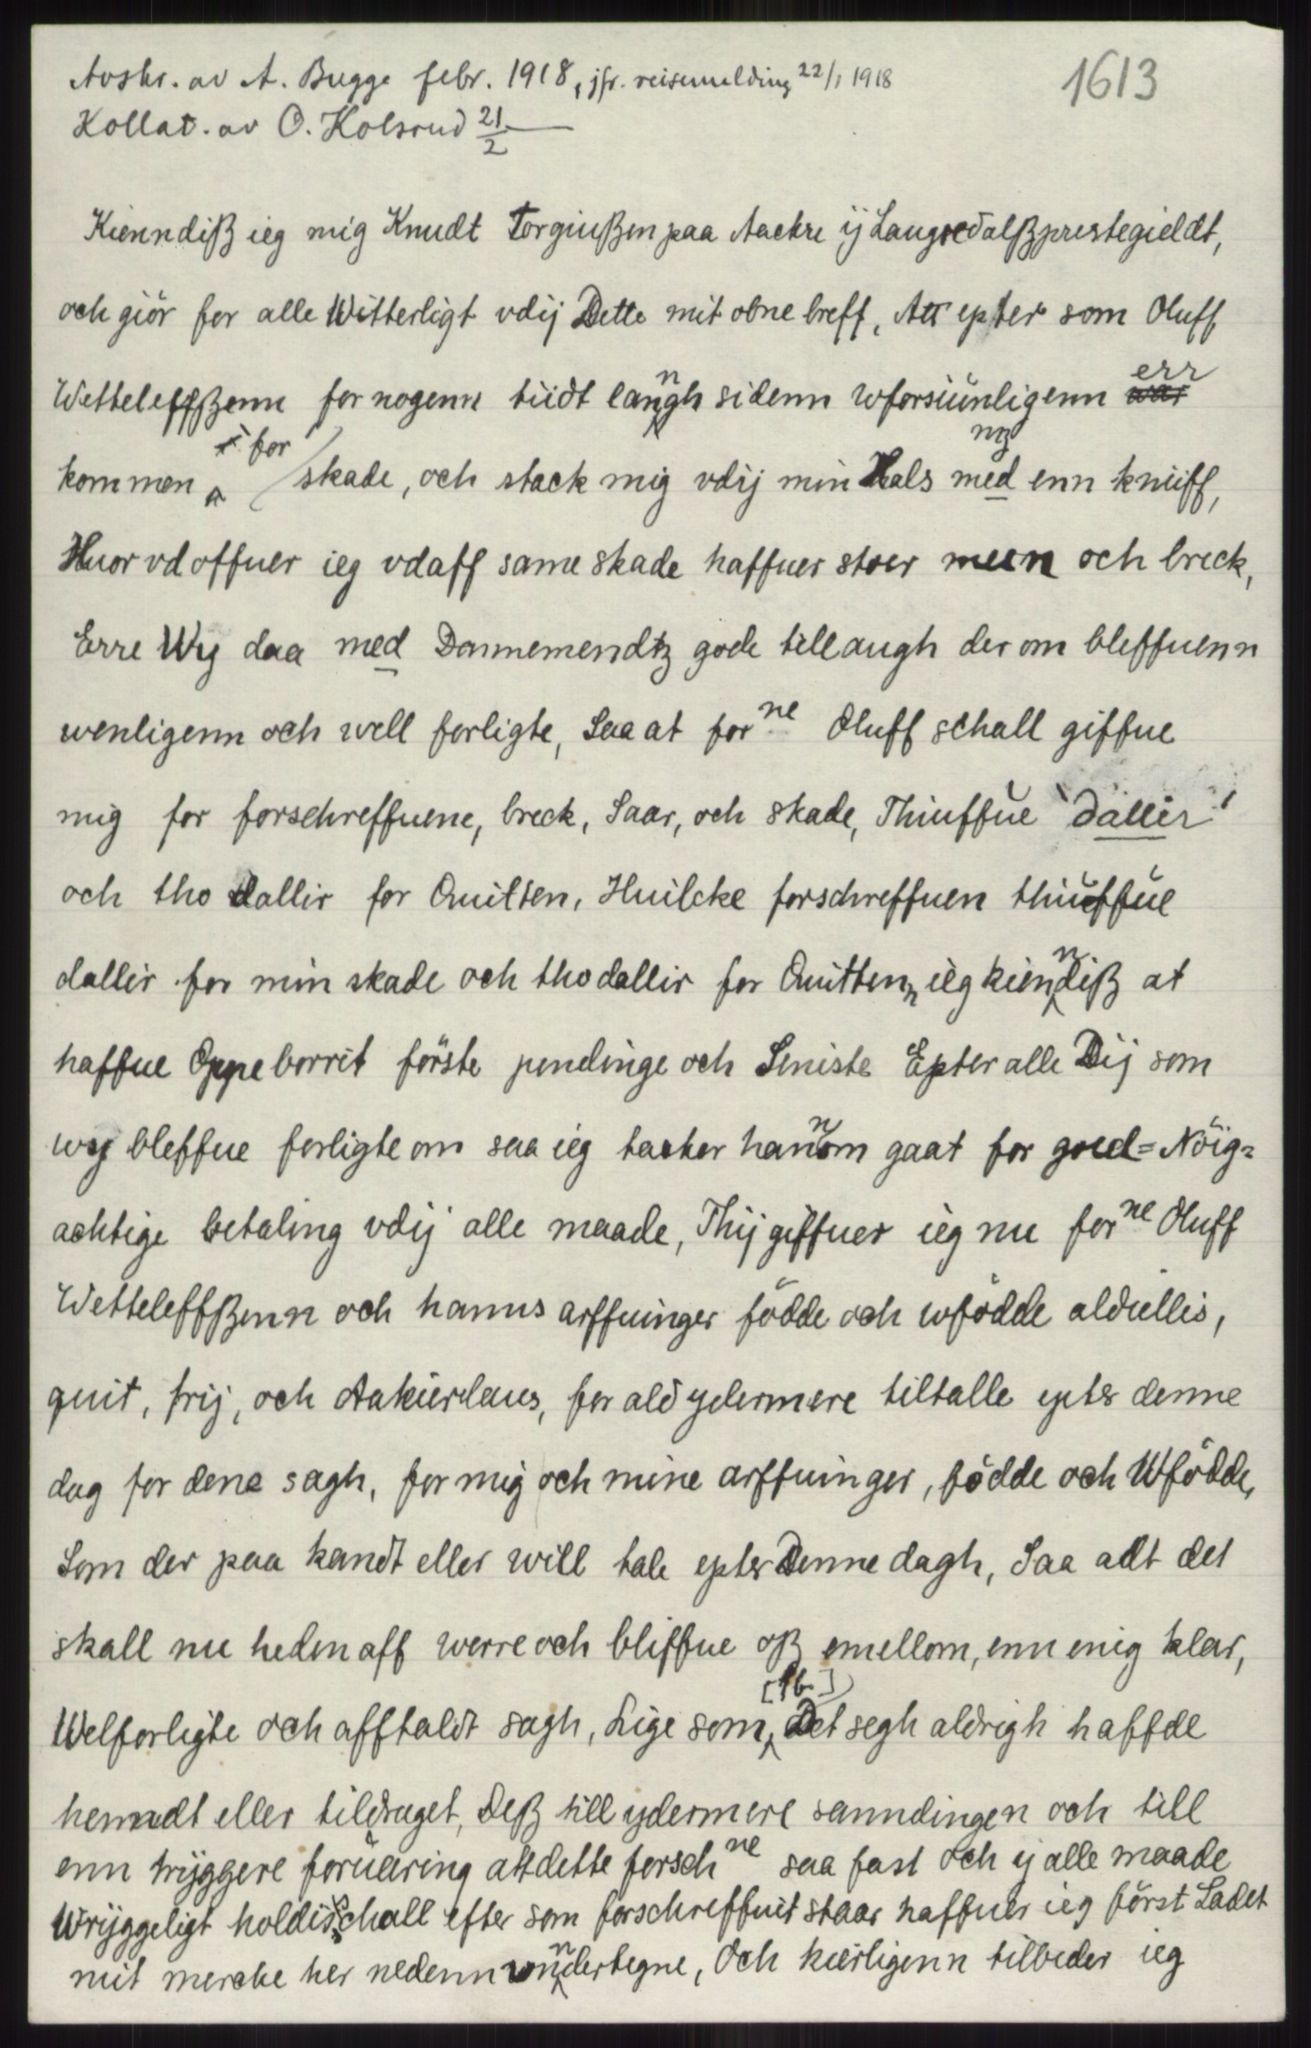 Avskr. av A. Bugge febr. 1918, jfr. reisemelding 22/1 1918
1613
Kollat. av O. Kolsrud 21/2
Kienndiß ieg mig Knudt Torgiußen paa Aackre ij Laugredalßprestegieldt,
och giör for alle Witterligt vdij Dette mit obne breff, Att epter som Oluff
Wetteleffßenn for nogenn tiidt lanngh sidenn wforsiünligenn err
kommen for skade, och stack mig vdij min Hals med enn kniiff,
Huor vdoffuer ieg vdaff same skade haffuer stoer meen och breck,
Erre Wy daa med Dannemendtz gode tillaugh der om bleffuenn
wenligenn och well forligte, Saa at for ne Oluff schall giffue
mig for forschreffuene, breck, Saar, och skade, Thiuffue dallir
och tho dallir for Quitten, Huilcke forschreffuen thiuffue
dallir for min skade och tho dallir for Quittenn, ieg kienndiß at
haffue Oppeborrit förste pendinge och Seniste Epter alle Dij som
wy bleffue forligte om saa ieg tacker hannom gaat for goed=Nöig=
achtige betaling vdij alle maade, Thij giffuer ieg nu for ne Oluff
Wetteleffßenn och hanns arffuinger födde och wfödde aldiellis,
quit, frij, och Aakierlaus, for ald ydermere tiltalle epter denne
dag for dene sagh, for mig och mine arffuinger, födde och Wfödde,
Som der paa kandt eller will tale epter Denne dagh, Saa adt det
skall nu heden aff werre och bliffue oß emellom, enn enig klar,
Welforligte och afftaldt sagh, Lige som [1b.] Det segh aldrigh haffde
henndt eller tildraget, Deß till ydermere sanndingen och till
enn tryggere foruaring att dette forsch ne saa fast och ij alle maade
Wryggeligt holdis schall efter som forschreffuit staar haffuer ieg först Ladet
mit mercke her nedenn wnndertegne, Och kierligenn tilbeder ieg